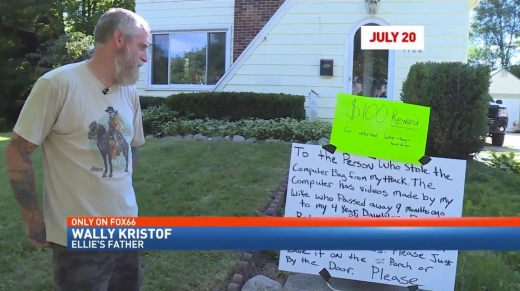 JULY 20
$100 Reward
for returned
To the Person Who Stole the
Computer Bag from my truck. The
Computer has videos made by my
Wife who Passed away 9 months ago
to my 4 year Daughter.
Please Just
leave it on the Porch or
By the Door. Please
ONLY ON FOX66
WALLY KRISTOF
ELLIE'S FATHER